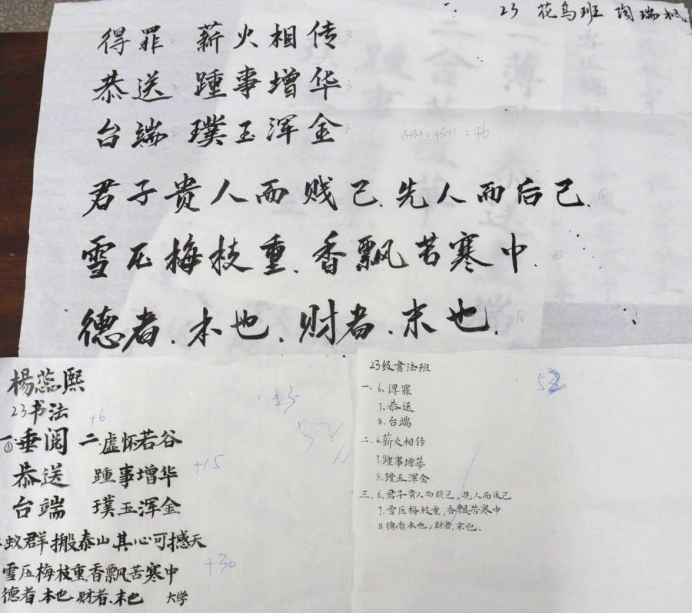 23 花鸟班 陶瑞枫
得罪 薪火相传
恭送 踵事增华
台端 璞玉浑金
15+30=45+1=46
君子贵人而贱己、先人而后己.
雪压梅枝重、香飘苦寒中.
德者、本也、财者、末也.
杨蕊熙
23书法
+6
一①垂阅 二虚怀若谷
恭送 踵事增华
+15
台端 璞玉浑金
蚁群搬泰山其心可撼天
雪压梅枝重,香飘苦寒中
+30
德者本也 财者、末也 大学
23级書法班
52
一. 6. 得罪
7. 恭送
8. 台端
二. 6. 薪火相传
7. 踵事增華
8. 璞玉浑金
三. 6. 君子贵人而贱己, 先人而后己
7. 雪压梅枝重, 香飘苦寒中
8. 德者本也, 财者, 末也.